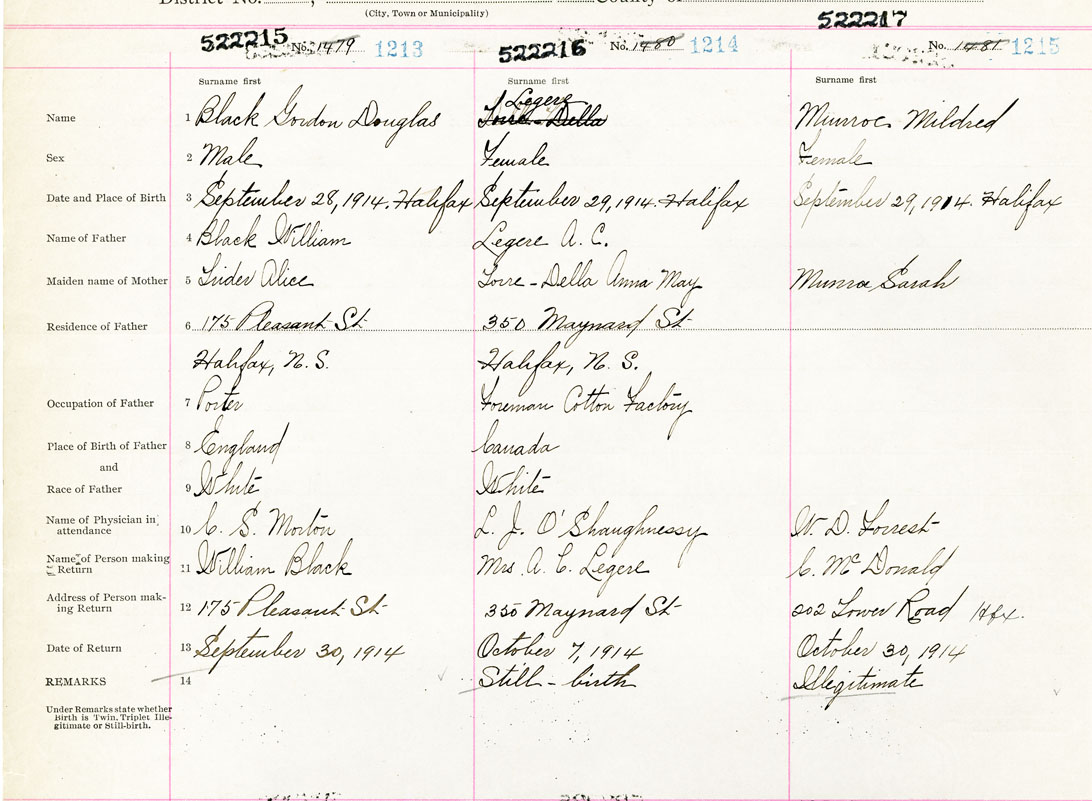 District No. , County of
(City, Town or Municipality)
522215 No. 1479 1213 522216 No. 1480 1214 522217 No. 1481 1215
Surname first Surname first Surname first
Legere
Name 1 Black Gordon Douglas Torre - Della Munroe Mildred
Sex 2 Male Female Female
Date and Place of Birth 3 September 28, 1914. Halifax September 29, 1914. Halifax September 29, 1914. Halifax
Name of Father 4 Black William Legere A. C.
Maiden name of Mother 5 Alice Torre - Della Anna May Munroe Sarah
Residence of Father 6 175 Pleasant St 350 Maynard St
Halifax, N. S. Halifax, N. S.
Occupation of Father 7 Porter Foreman Cotton Factory
Place of Birth of Father 8 England Canada
and
Race of Father 9 White White
Name of Physician in attendance 10 C. S. Morton L. J. O'Shaughnessy W. D. Forrest
Name of Person making Return 11 William Black Mrs. A. C. Legere C. McDonald
Address of Person making Return 12 175 Pleasant St 350 Maynard St 202 Tower Road Hfx.
Date of Return 13 September 30, 1914 October 7, 1914 October 30, 1914
REMARKS 14 Still - birth Illegitimate
Under Remarks state whether
Birth is Twin, Triplet Ille-
gitimate or Still-birth.